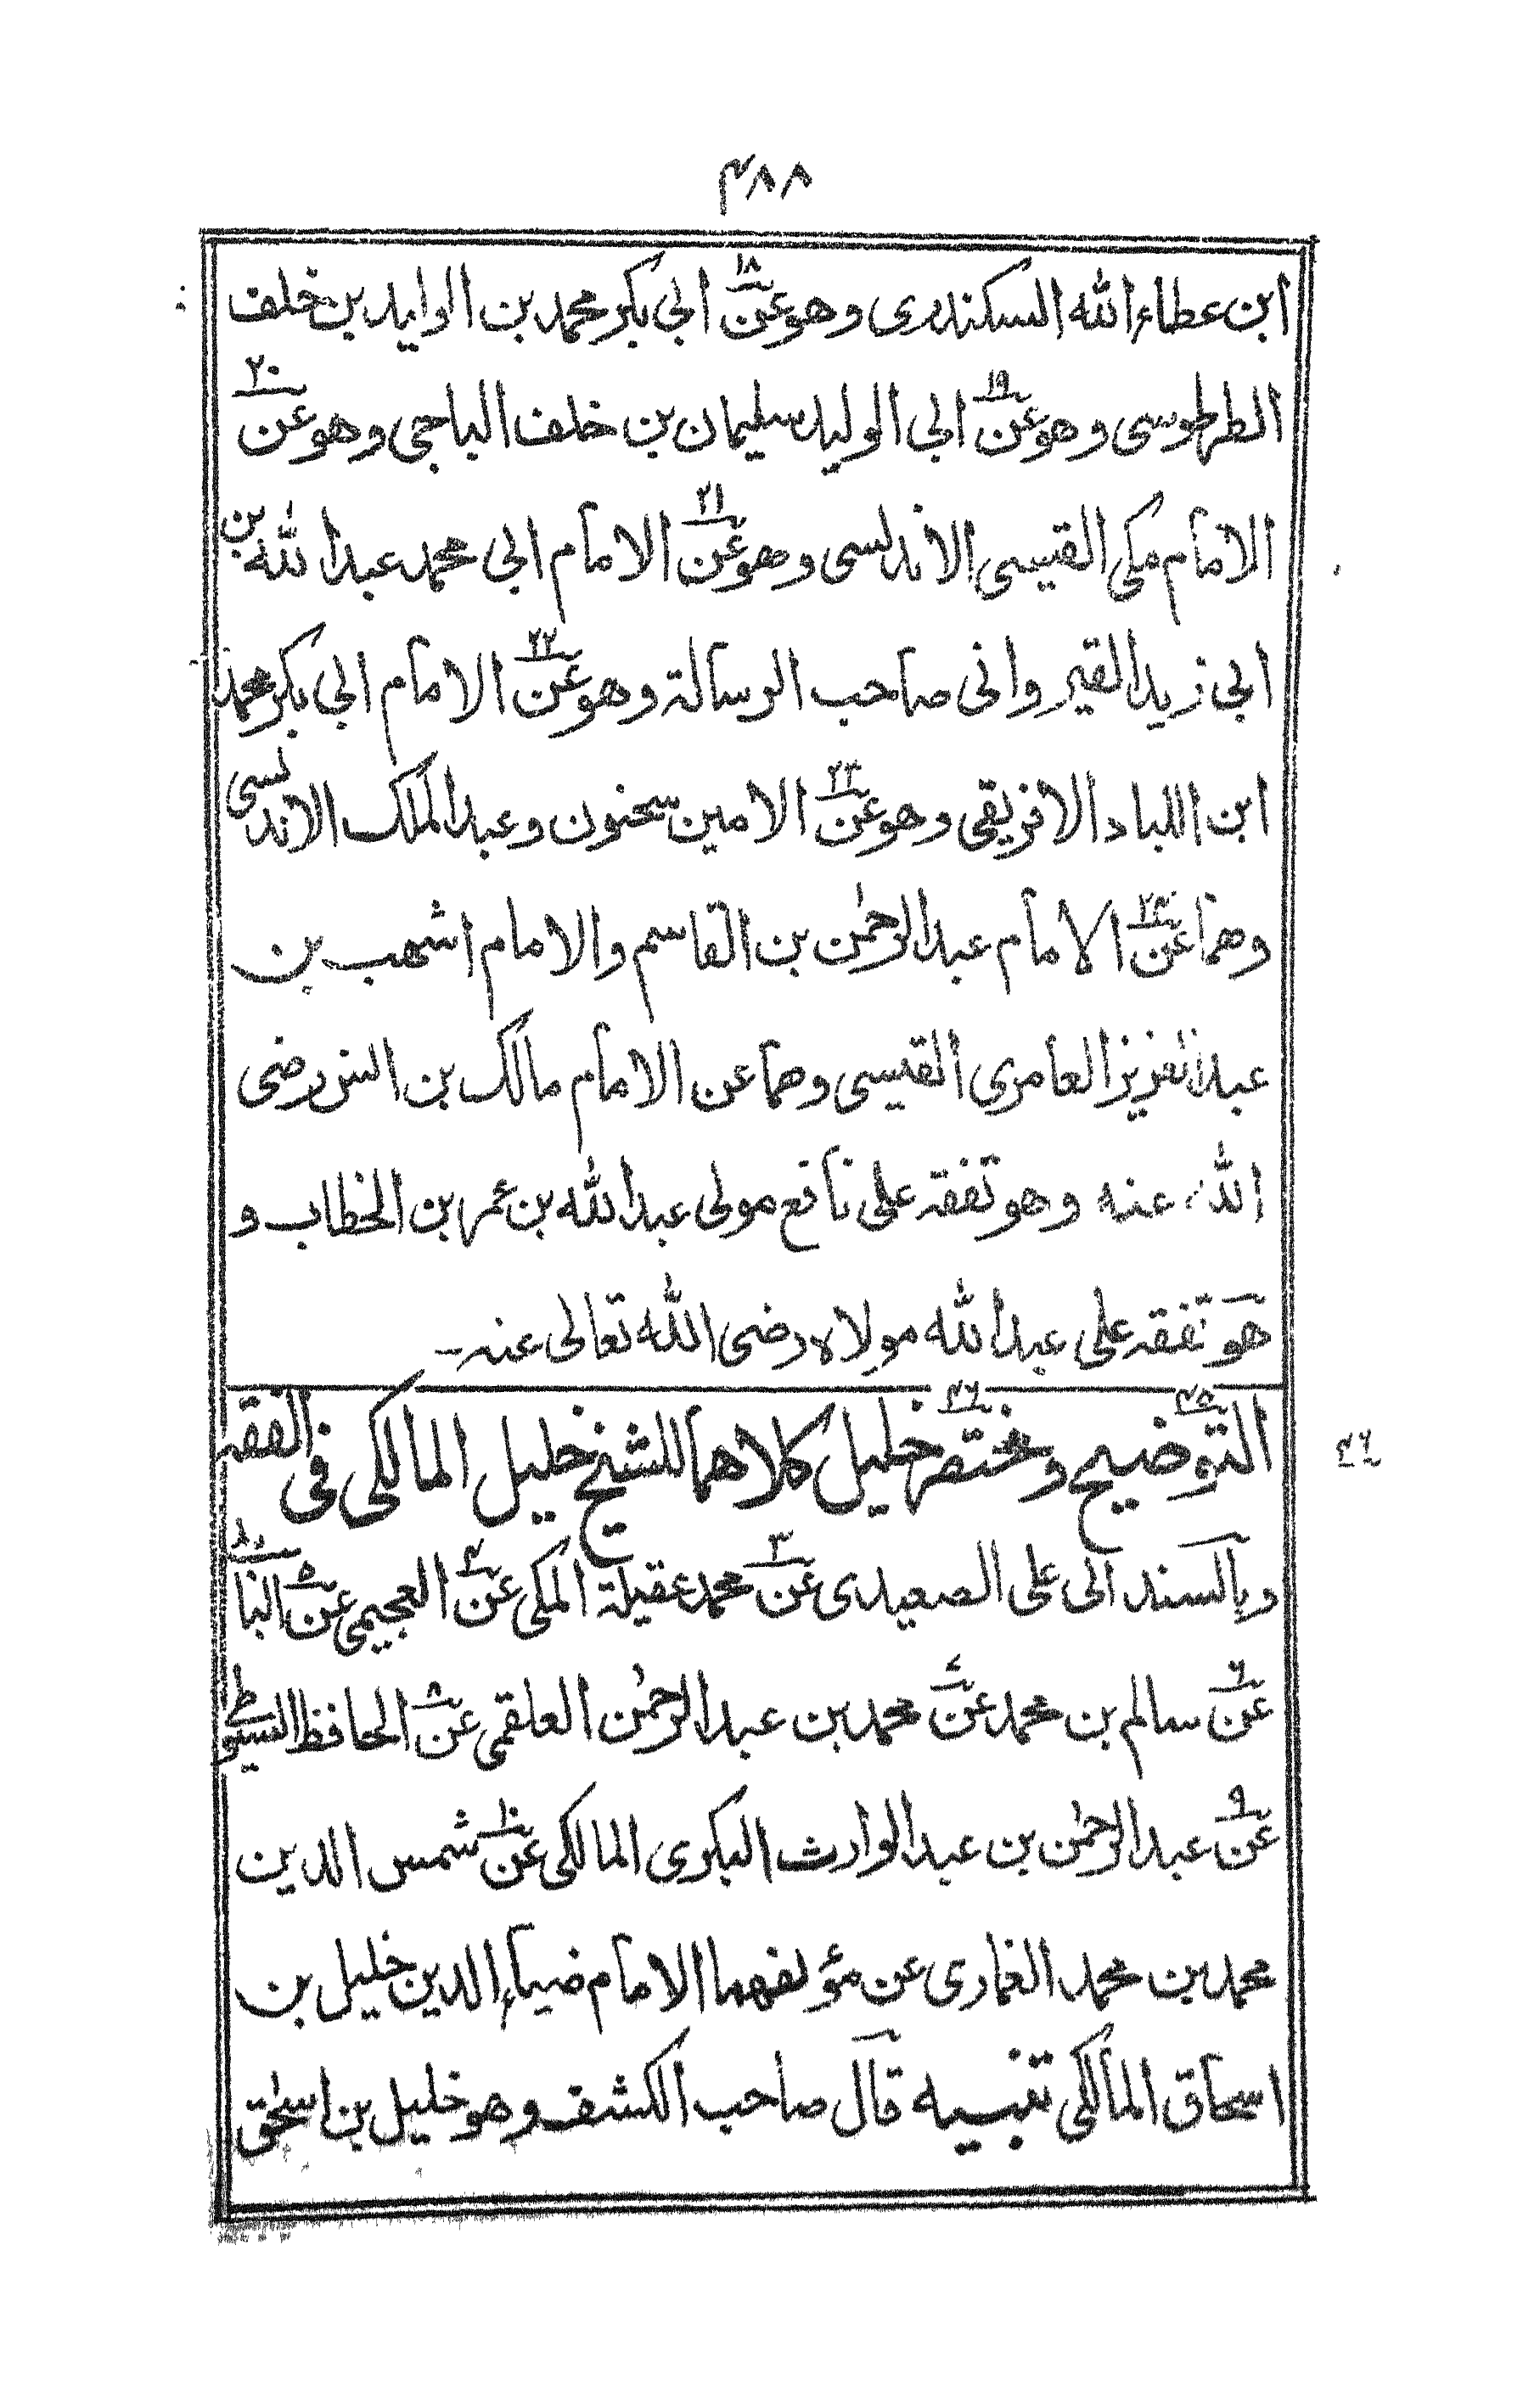 ۴۸۸
ابن عطاء الله السكندرى وهو عن ۱۸ ابي بكر محمد بن الوليد بن خلف
الطرطوسى وهو عن ۱۹ ابي الوليد سليمان بن خلف الباجي وهو عن ۲۰
الامام مكي القيسي الاندلسى وهو عن ۲۱ الامام ابي محمد عبد الله بن
ابي زيد القيروانى صاحب الرسالة وهو عن ۲۲ الامام ابي بكر محمد
ابن اللباد الافريقي وهو عن ۲۳ الامين سحنون وعبد الملك الاندلسى
وهما عن ۲۴ الامام عبد الرحمٰن بن القاسم والامام اشهب بن
عبد العزيز العامري القيسى وهما عن الامام مالك بن انس رضى
الله عنه وهو تفقه على نافع مولى عبد الله بن عمر بن الخطاب و
هو تفقه على عبد الله مولاه رضى الله تعالى عنه ـ
التوضيح ۴۵ ومختصر ۴۶ خليل كلاهما للشيخ خليل المالكى فى الفقه
۴۶
وبالسند الى على الصعيدى عن ۳ محمد عقيلة المكى عن ۴ العجيمى عن ۵ البابلى
عن ۶ سالم بن محمد عن ۷ محمد بن عبد الرحمٰن العلقمى عن ۸ الحافظ السيوطى
عن ۹ عبد الرحمٰن بن عبد الوارث البكرى المالكى عن ۱۰ شمس الدين
محمد بن محمد الغمارى عن مؤلفهما الامام ضياء الدين خليل بن
اسحاق المالكى تنبيه قال صاحب الكشف وهو خليل بن اسحٰق